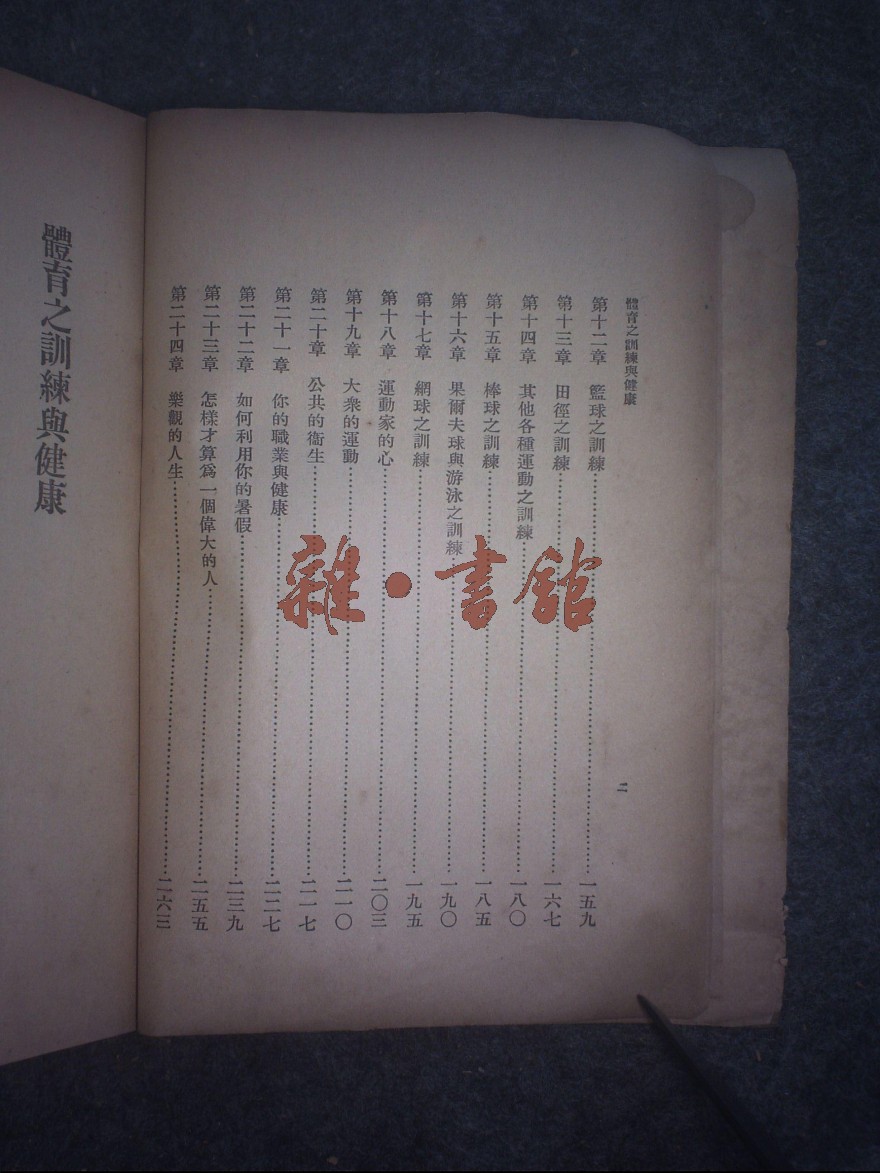 體育之訓練與健康
第十二章 籃球之訓練……一五九
第十三章 田徑之訓練……一六七
第十四章 其他各種運動之訓練……一八〇
第十五章 棒球之訓練……一八五
第十六章 果爾夫球與游泳之訓練……一九〇
第十七章 網球之訓練……一九五
第十八章 運動家的心……二〇三
第十九章 大衆的運動……二一〇
第二十章 公共的衞生……二一七
第二十一章 你的職業與健康……二二七
第二十二章 如何利用你的暑假……二三九
第二十三章 怎樣才算爲一個偉大的人……二五五
第二十四章 樂觀的人生……二六三
二
體育之訓練與健康
雜·書館